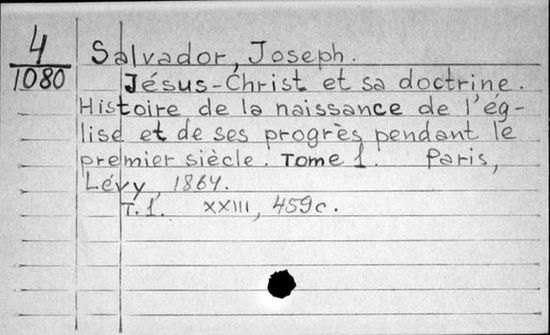 4
1080
Salvador, Joseph.
Jésus-Christ et sa doctrine.
Histoire de la naissance de l'ég-
lise et de ses progrès pendant le
premier siècle. Tome 1. Paris,
Lévy, 1864.
T. 1. XXIII, 459c.